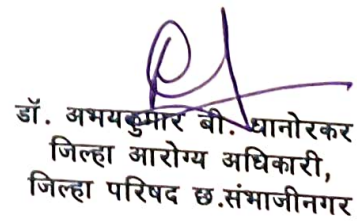 डॉ. अभयकुमार बी. धानोरकर
जिल्हा आरोग्य अधिकारी,
जिल्हा परिषद छ.संभाजीनगर